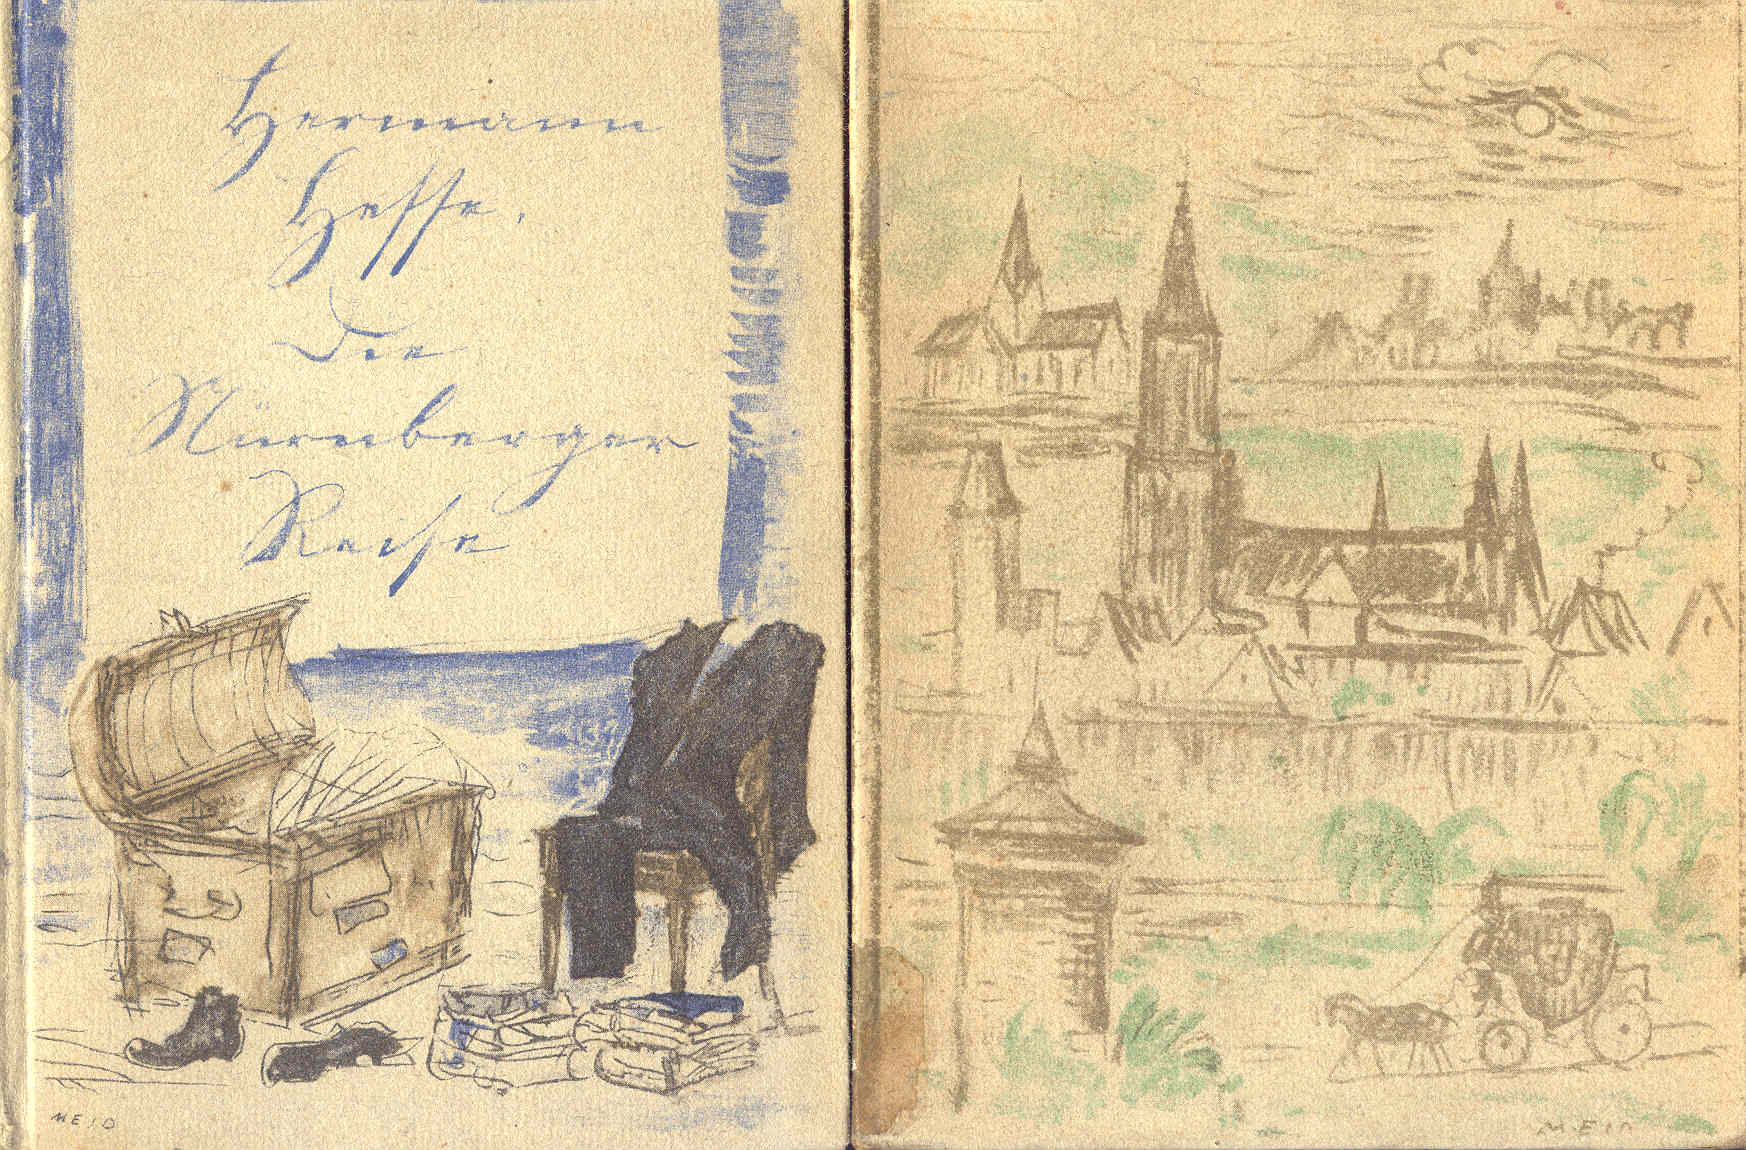 Hermann
Hesse,
Die
Nürnberger
Reise
MEID
MEID